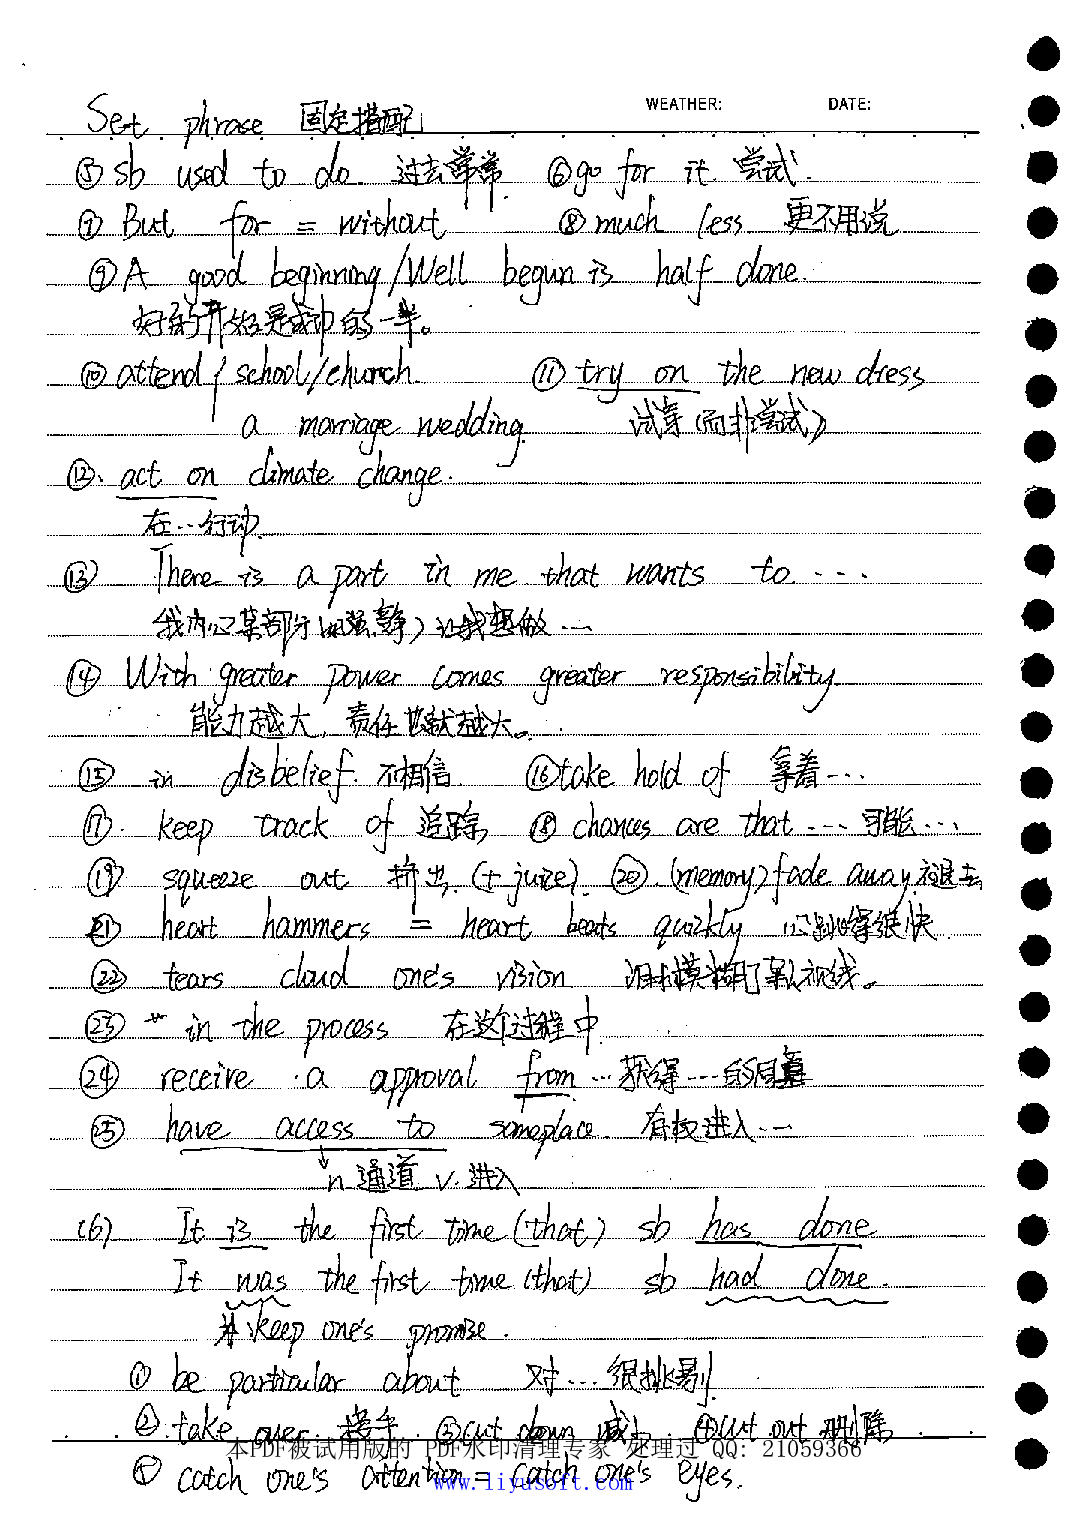 WEATHER: DATE:
Set phrase 固定搭配
⑤ sb used to do 过去常常 ⑥ go for it 尝试.
⑦ But for = without ⑧ much less 更不用说
⑨ A good beginning/Well begun is half done.
好的开始是成功的一半。
⑩ attend { school/church ⑪ try on the new dress
a marriage wedding. 试穿(而非尝试)
⑫. act on climate change.
在…行动
⑬ There is a part in me that wants to ....
我内心某部分 让我想做 …
⑭ With greater power comes greater responsibility
能力越大, 责任也就越大。
⑮ in disbelief. 不相信 ⑯ take hold of 拿着…
⑰. keep track of 追踪 ⑱ chances are that .... 可能…
⑲ squeeze out 挤出.(+ juice). ⑳. (memory) fade away. 褪去
㉑ heart hammers = heart beats quickly 心跳得很快
㉒ tears cloud one's vision 泪水模糊了 视线。
㉓ in the process 在这个过程中
㉔ receive a approval from … 获得…的同意
㉕ have access to someplace. 有权进入…
n 通道 v. 进入
(6) It is the first time (that) sb has done
It was the first time (that) sb had done.
keep one's promise.
① be particular about 对…很挑剔
② take over 接手 ③ cut down 减少 ④ cut out 删除
本PDF被试用版的 PDF水印清理专家 处理过 QQ: 21059366
⑤ catch one's attention = catch one's eyes.
www.liyusoft.com